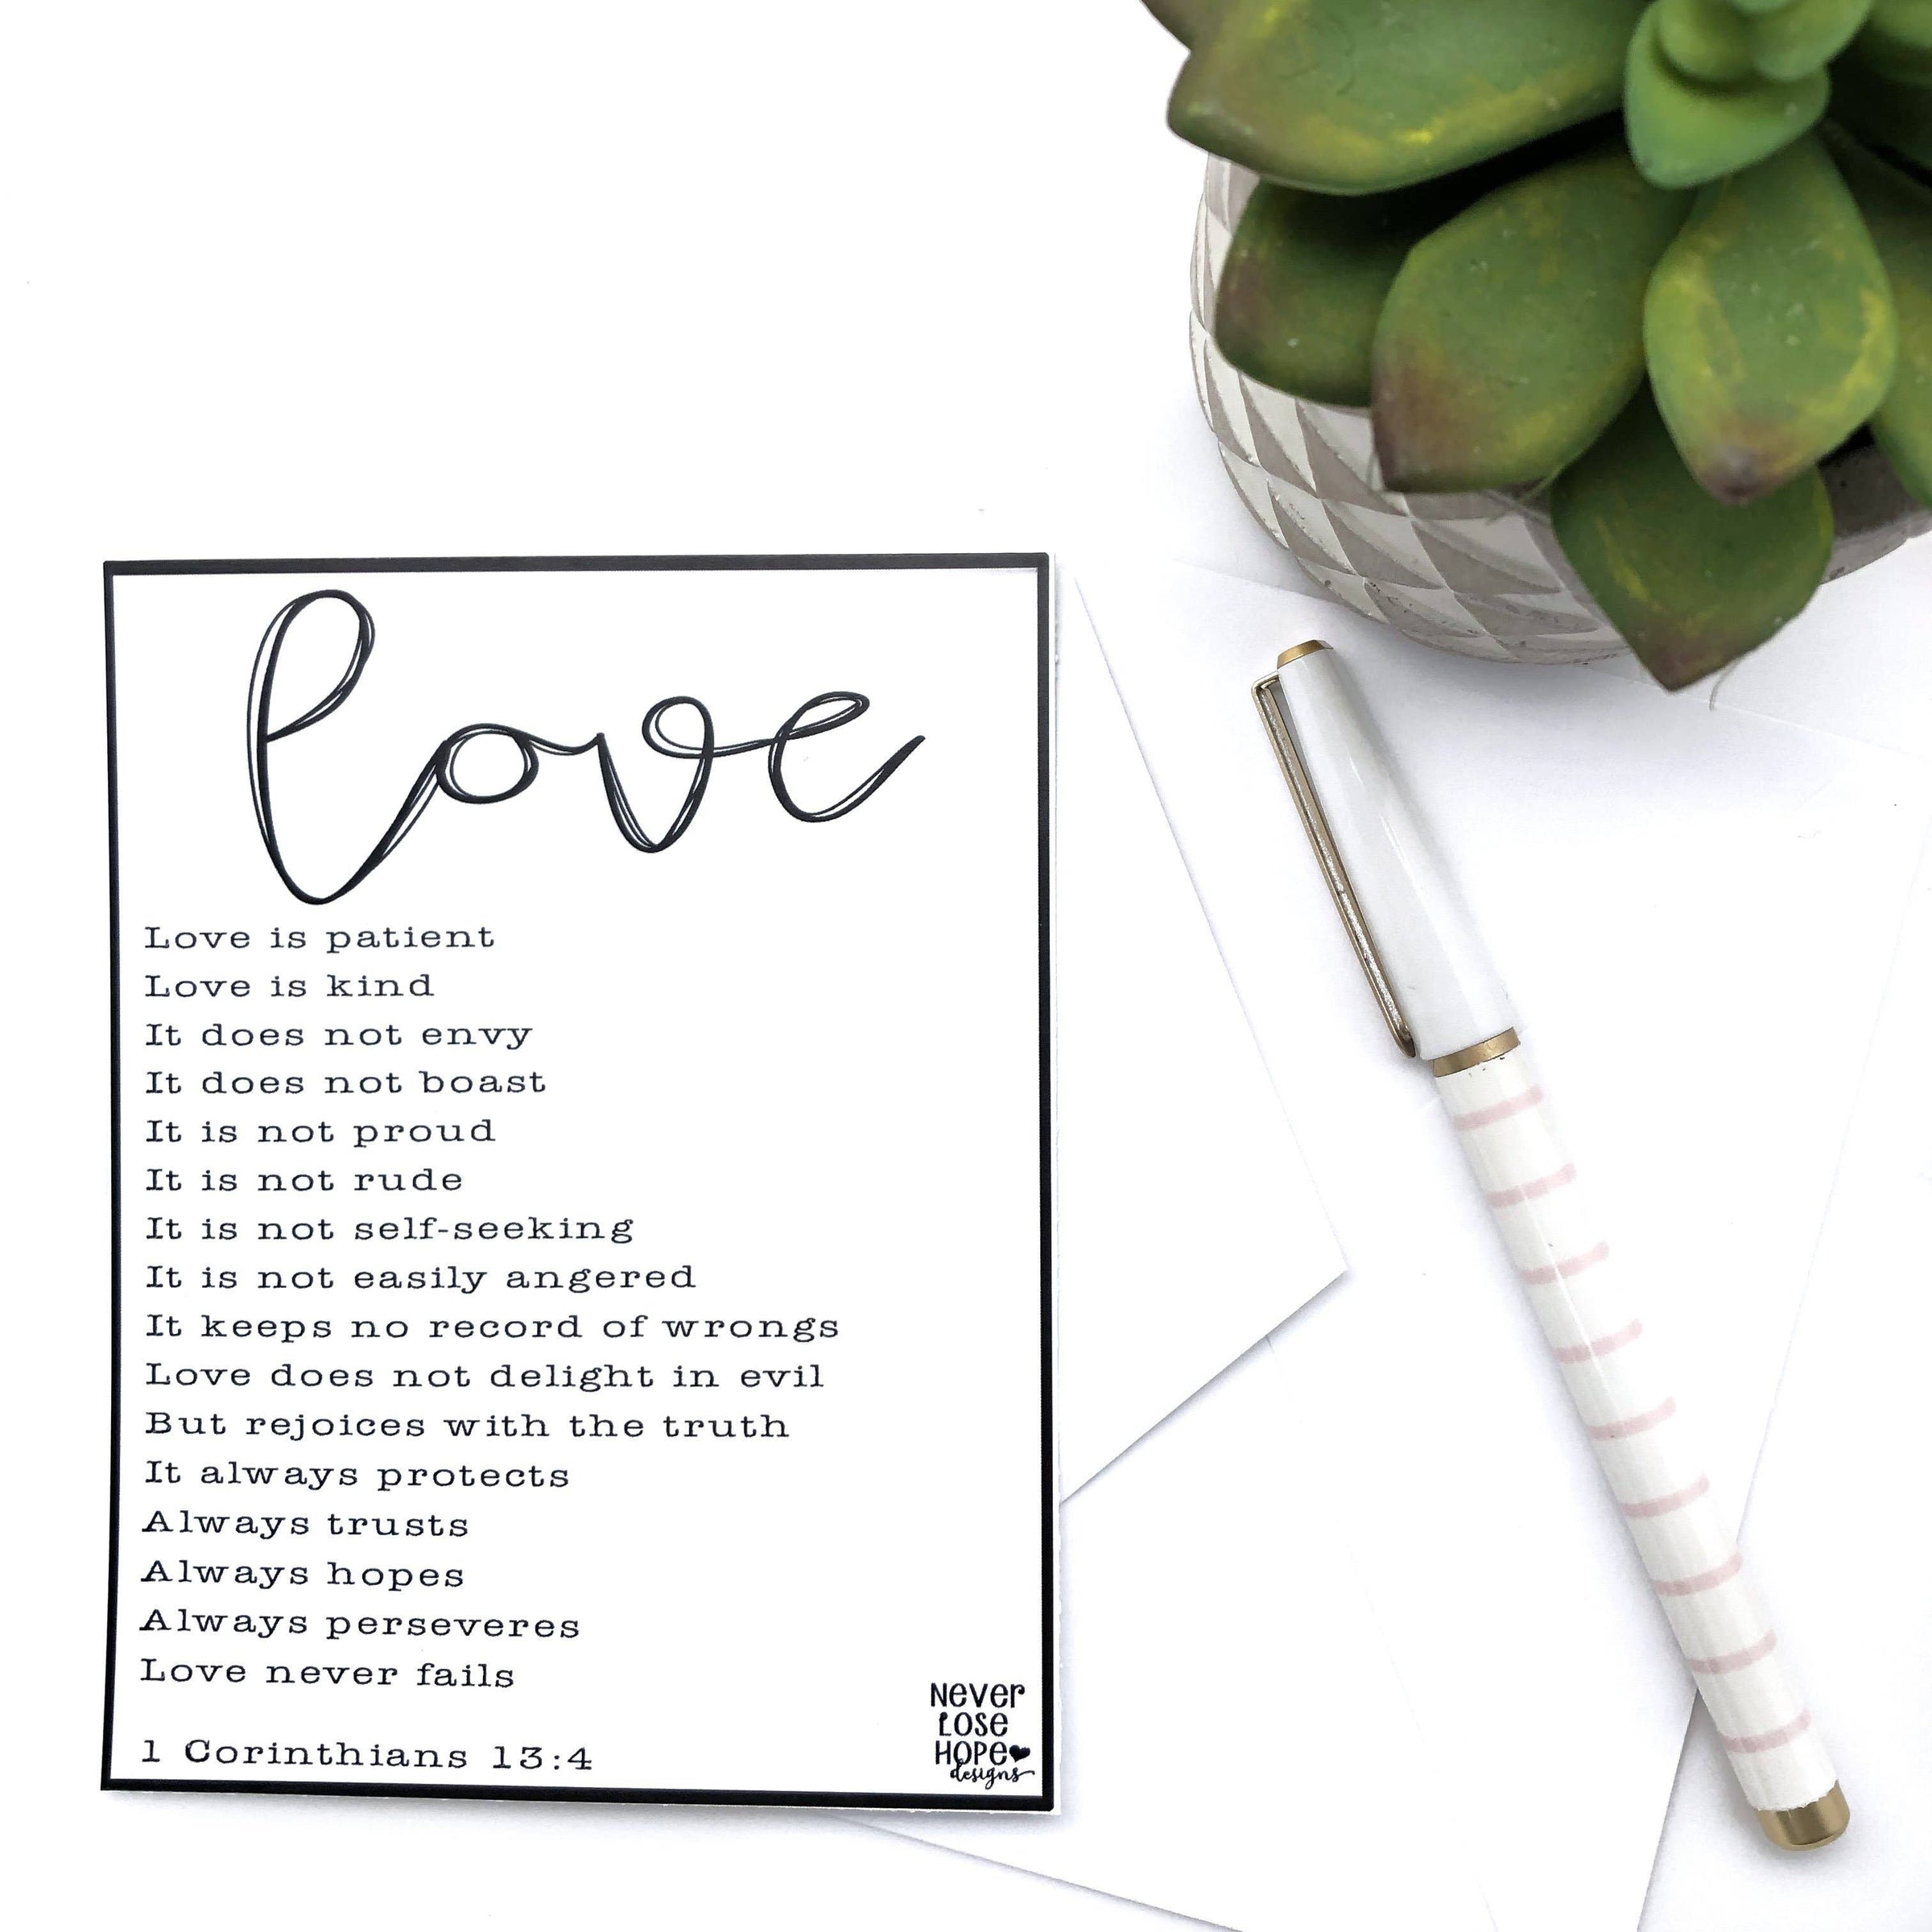 love
Love is patient
Love is kind
It does not envy
It does not boast
It is not proud
It is not rude
It is not self-seeking
It is not easily angered
It keeps no record of wrongs
Love does not delight in evil
But rejoices with the truth
It always protects
Always trusts
Always hopes
Always perseveres
Love never fails
1 Corinthians 13:4
Never
Lose
Hope
designs